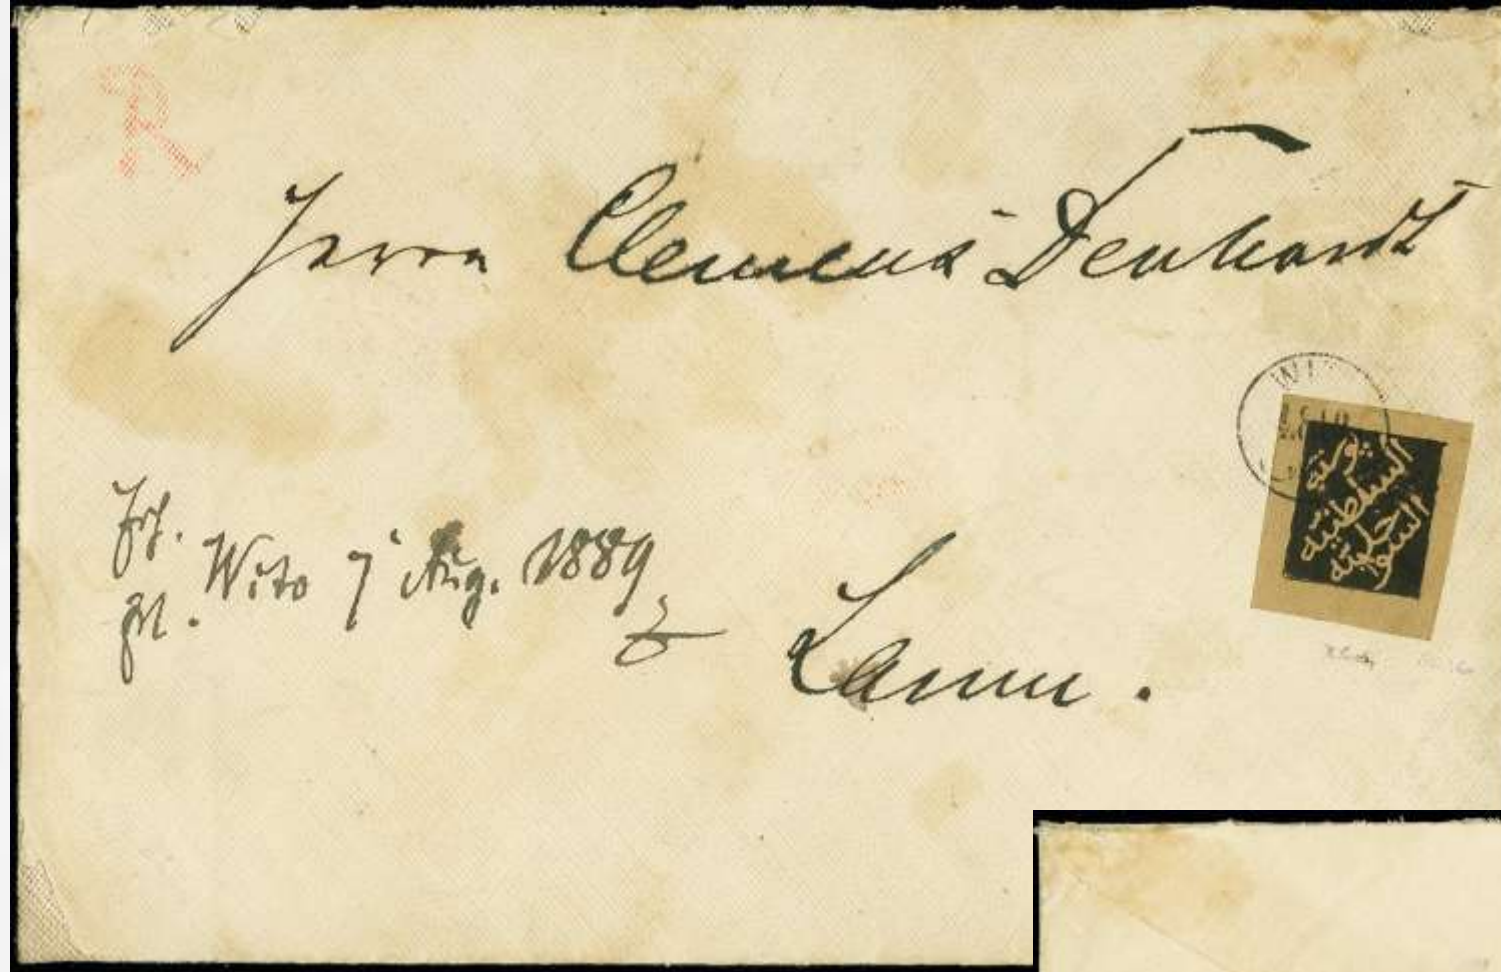 R
Herrn Clemens Denhardt
WI
پوسته
السلطنيه
السواحليته
Wito 7 Aug. 1889
Lamu.